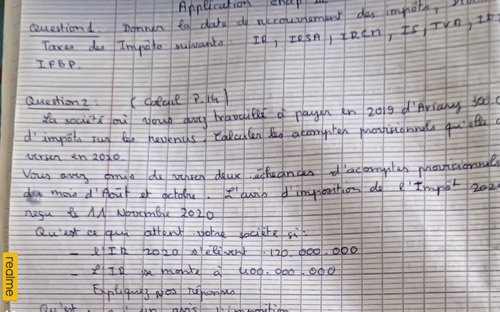 Application chap
Question 1 : Donner la date de recouvrement des impôts,
Taxes des Impôts suivants : IR, IRSA, IRCM, IS, TVA,
IFBP.
Question 2 : (Calcul P.14)
La société où vous avez travaillé a payer en 2019 d'Ariary 300
d'impôts sur les revenus. Calculer les acomptes provisionnels qu'elle
verser en 2020.
Vous avez omis de verser deux échéances d'acomptes provisionnels
des mois d'Août et octobre. L'avis d'imposition de l'Impôt 2020
reçu le 11 Novembre 2020
Qu'est ce que attent votre société si :
- l'IR 2020 s'élèvent 120.000.000
- l'IR se monte à 400.000.000
Expliquez vos réponses.
Qu'est
realme